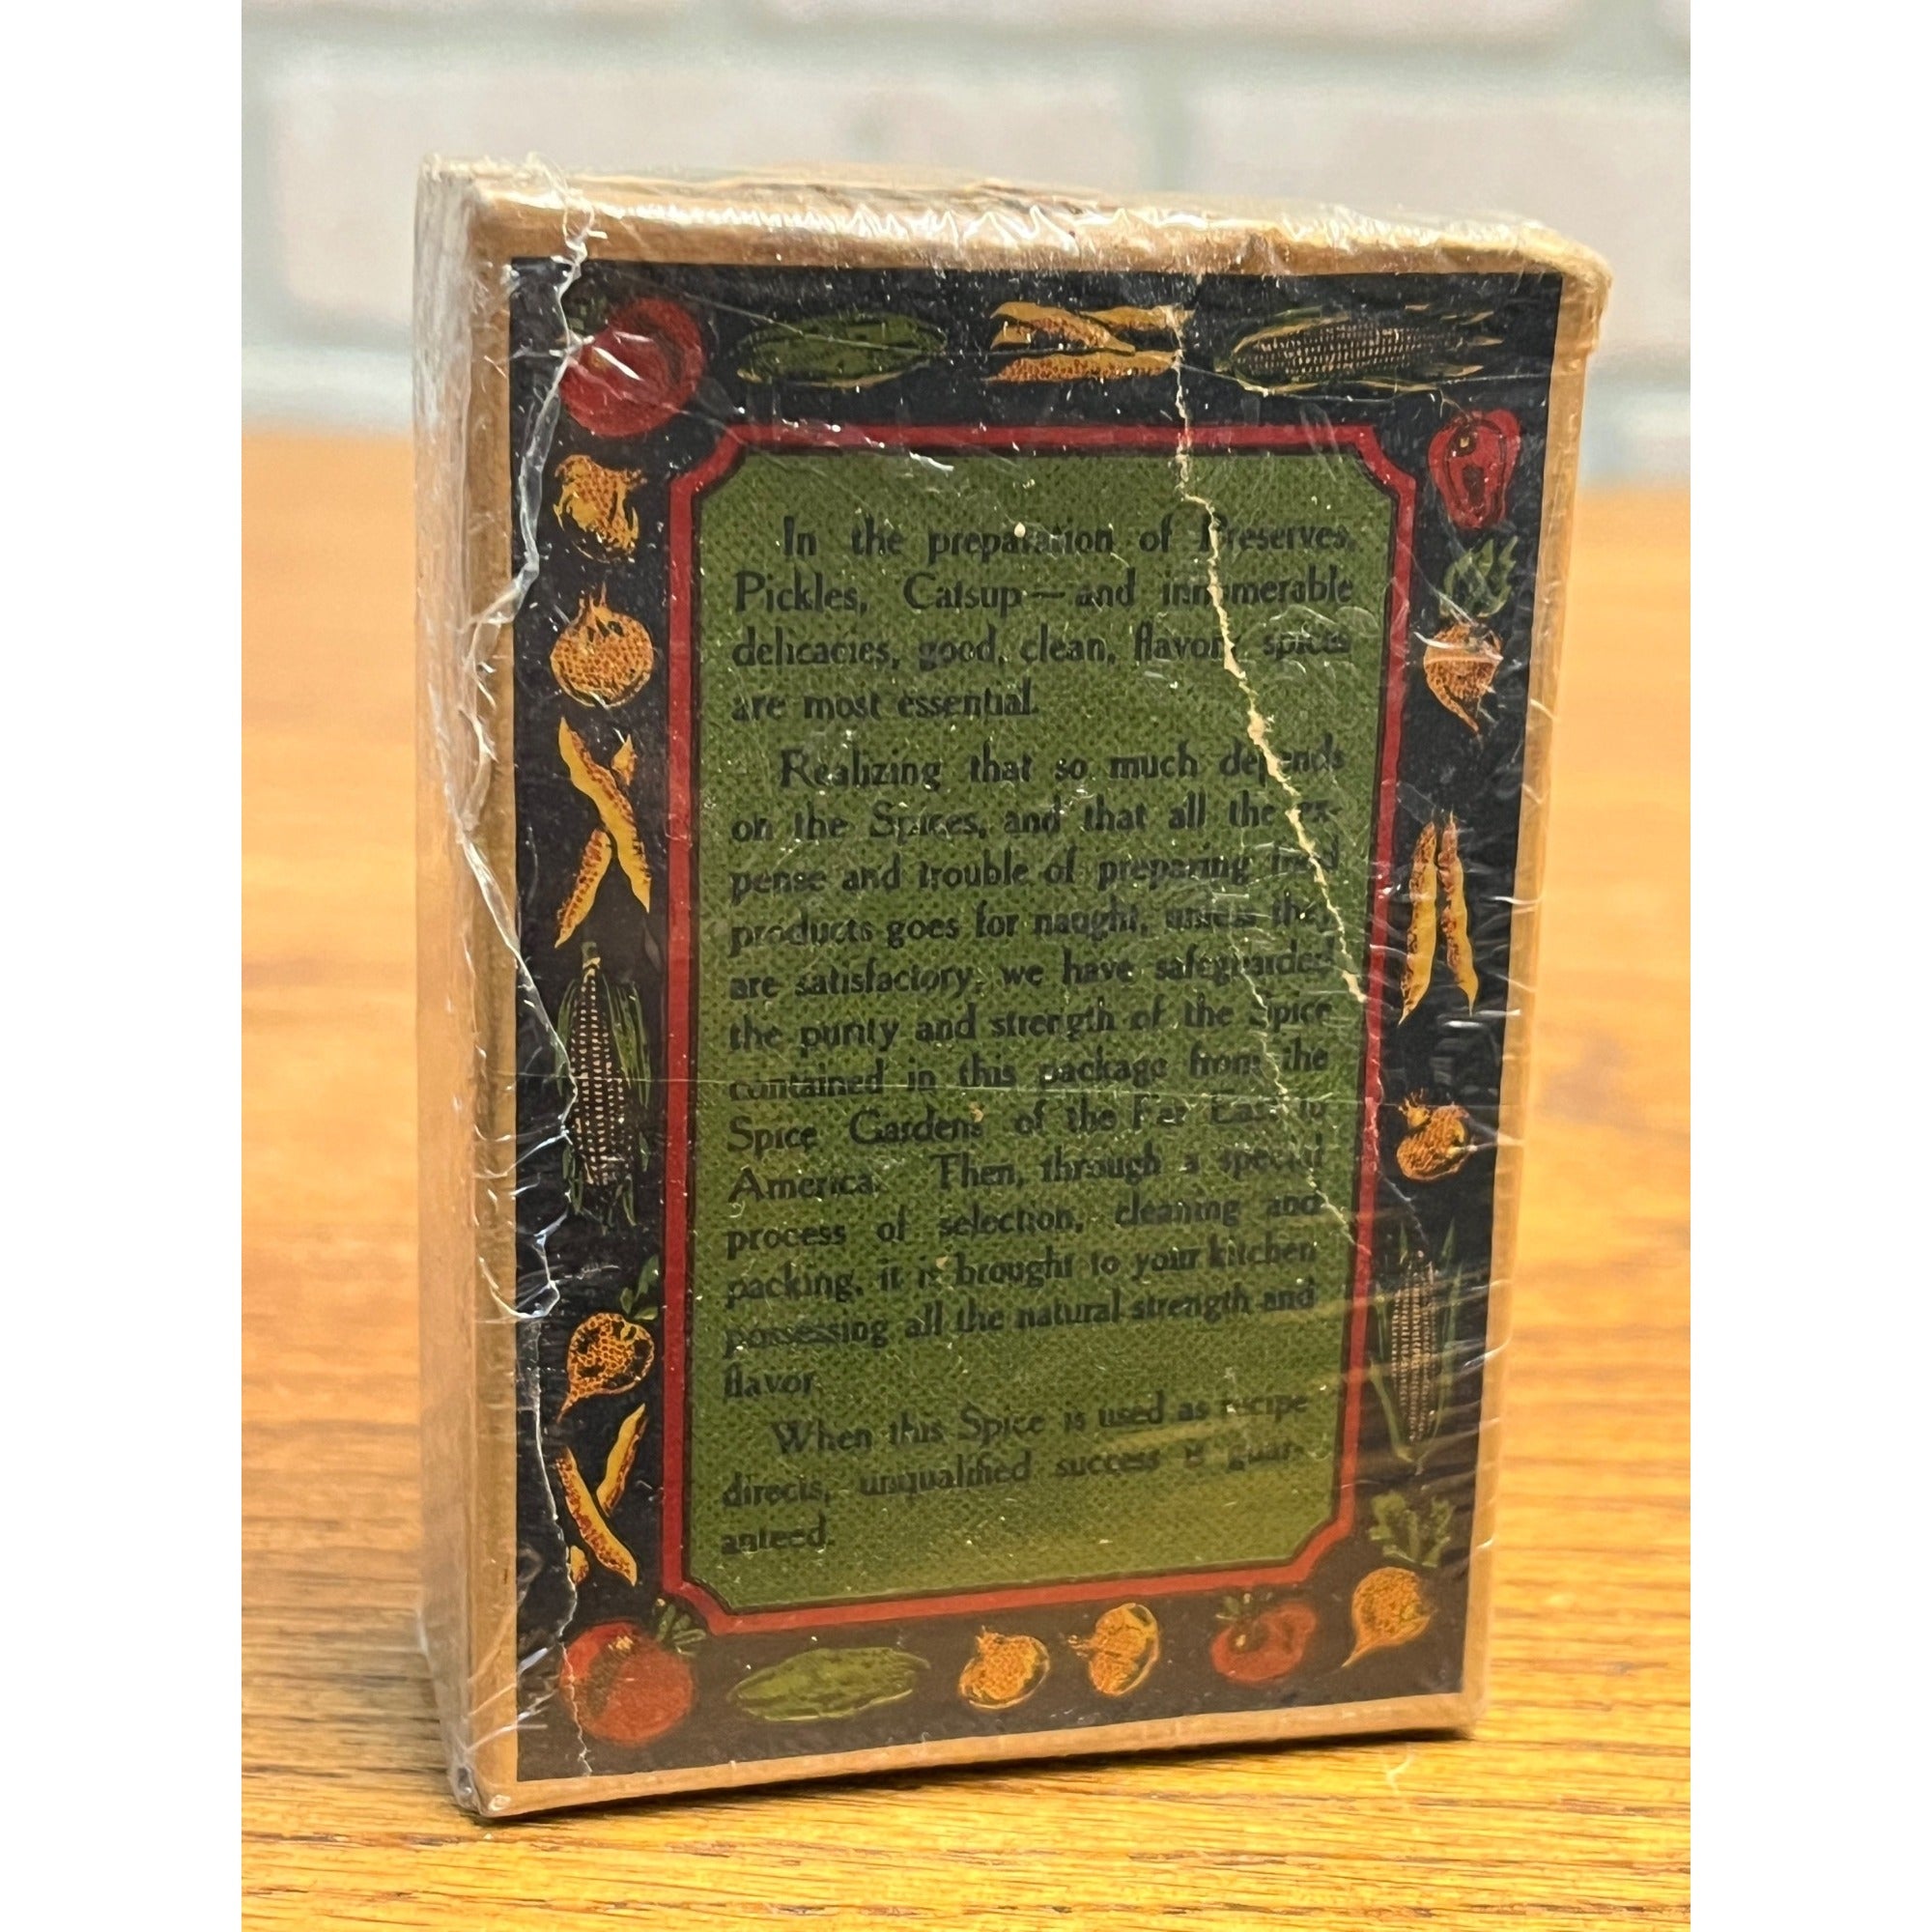 In the preparation of Preserves,
Pickles, Catsup — and innumerable
delicacies, good, clean, flavory spices
are most essential.
Realizing that so much depends
on the Spices, and that all the ex-
pense and trouble of preparing food
products goes for naught, unless they
are satisfactory, we have safeguarded
the purity and strength of the Spice
contained in this package from the
Spice Gardens of the Far East to
America. Then, through a special
process of selection, cleaning and
packing, it is brought to your kitchen
possessing all the natural strength and
flavor.
When this Spice is used as recipe
directs, unqualified success is guar-
anteed.